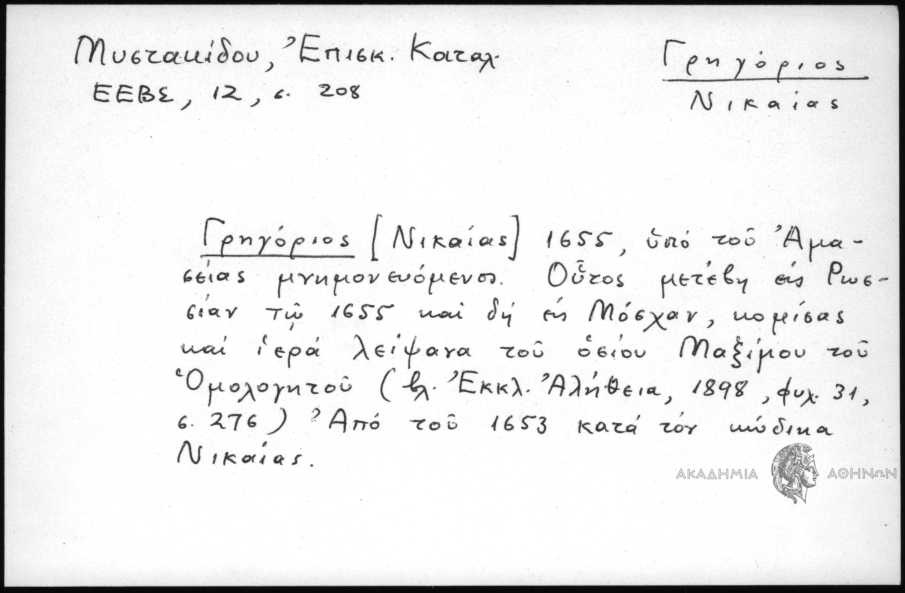 Μυστακίδου, Ἐπισκ. Καταλ.
ΕΕΒΣ, 12, σ. 208
Γρηγόριος
Νικαίας
Γρηγόριος [Νικαίας] 1655, ὑπό τοῦ Ἀμα-
σείας μνημονευόμενος. Οὗτος μετέβη εἰς Ρωσ-
σίαν τῷ 1655 καί δή εἰς Μόσχαν, κομίσας
καί ἱερά λείψανα τοῦ ὁσίου Μαξίμου τοῦ
Ὁμολογητοῦ (βλ. Ἐκκλ. Ἀλήθεια, 1898, φυλ. 31,
σ. 276) Ἀπό τοῦ 1653 κατά τόν κώδικα
Νικαίας.
ΑΚΑΔΗΜΙΑ ΑΘΗΝΩΝ